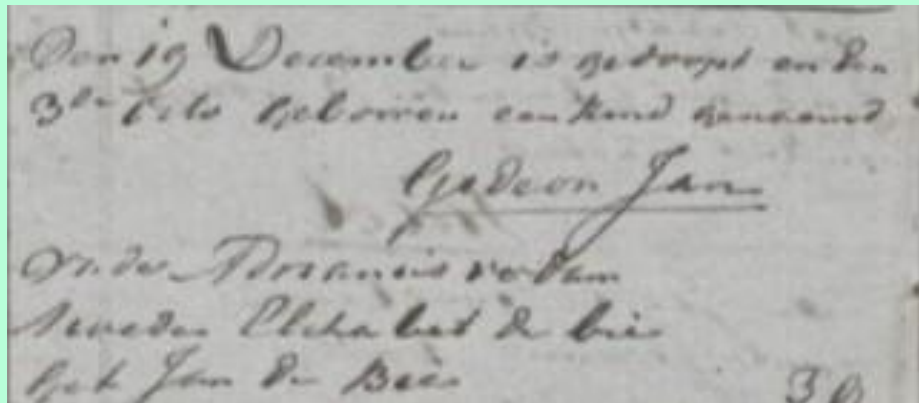 Den 19 December is gedoopt en den
3de dito geboren een kind genaamd
Gedeon Jan
Vader Adrianus v Dam
Moeder Elizabet de bie
Get Jan de Bie